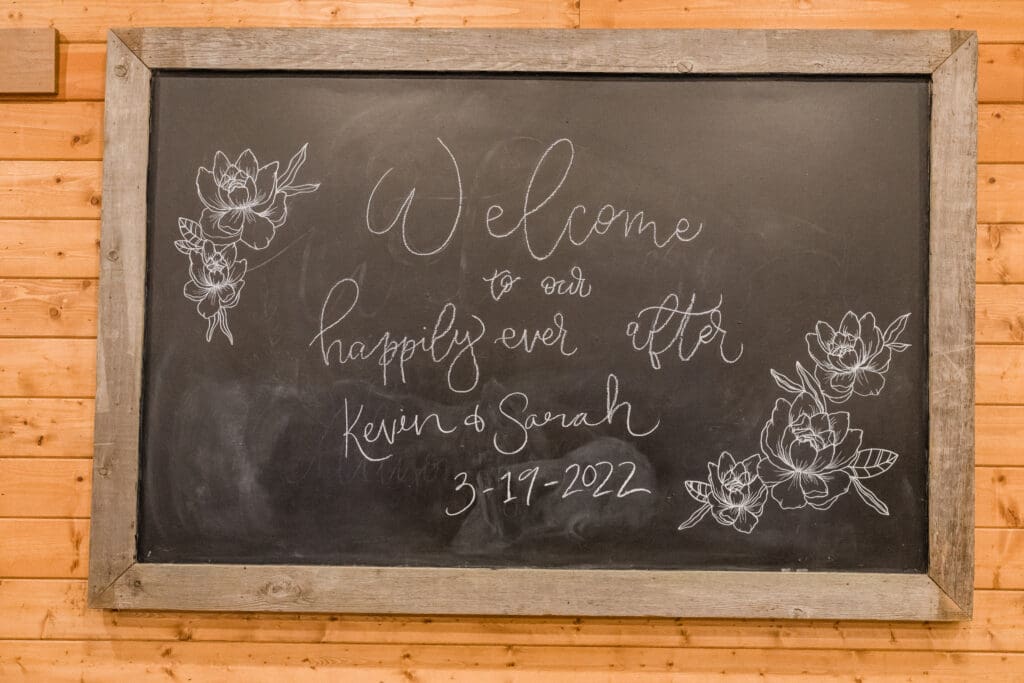 Welcome
to our
happily ever after
Kevin & Sarah
3-19-2022